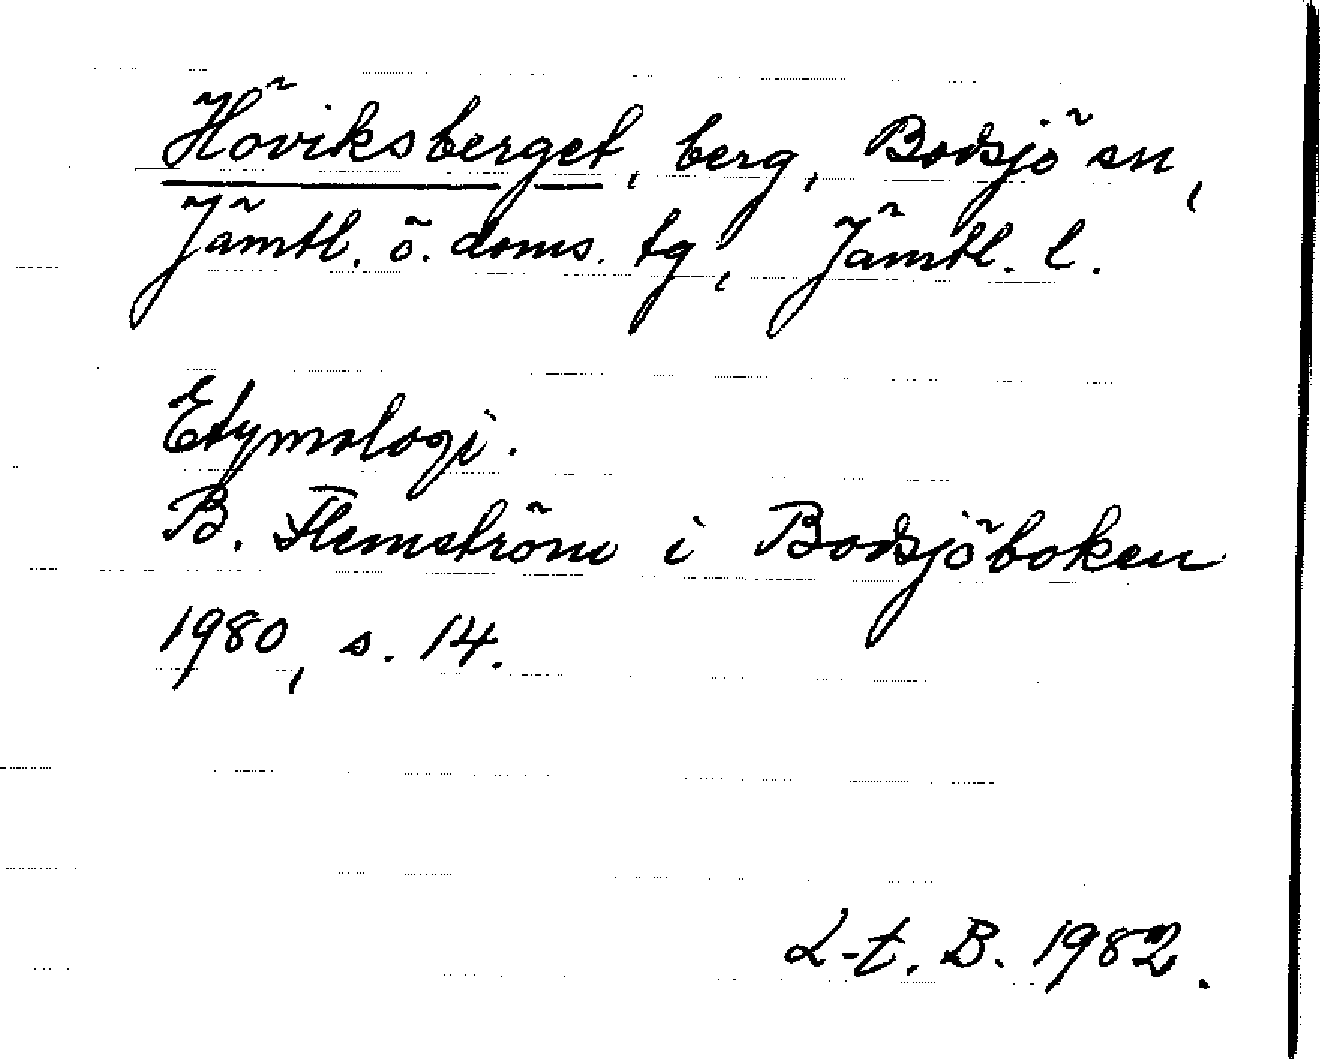 Höviksberget, berg, Bodsjö sn,
Jämtl. ö. doms. tg, Jämtl. l.
Etymologi.
B. Flemström i Bodsjöboken
1980, s. 14.
L-t. B. 1982.